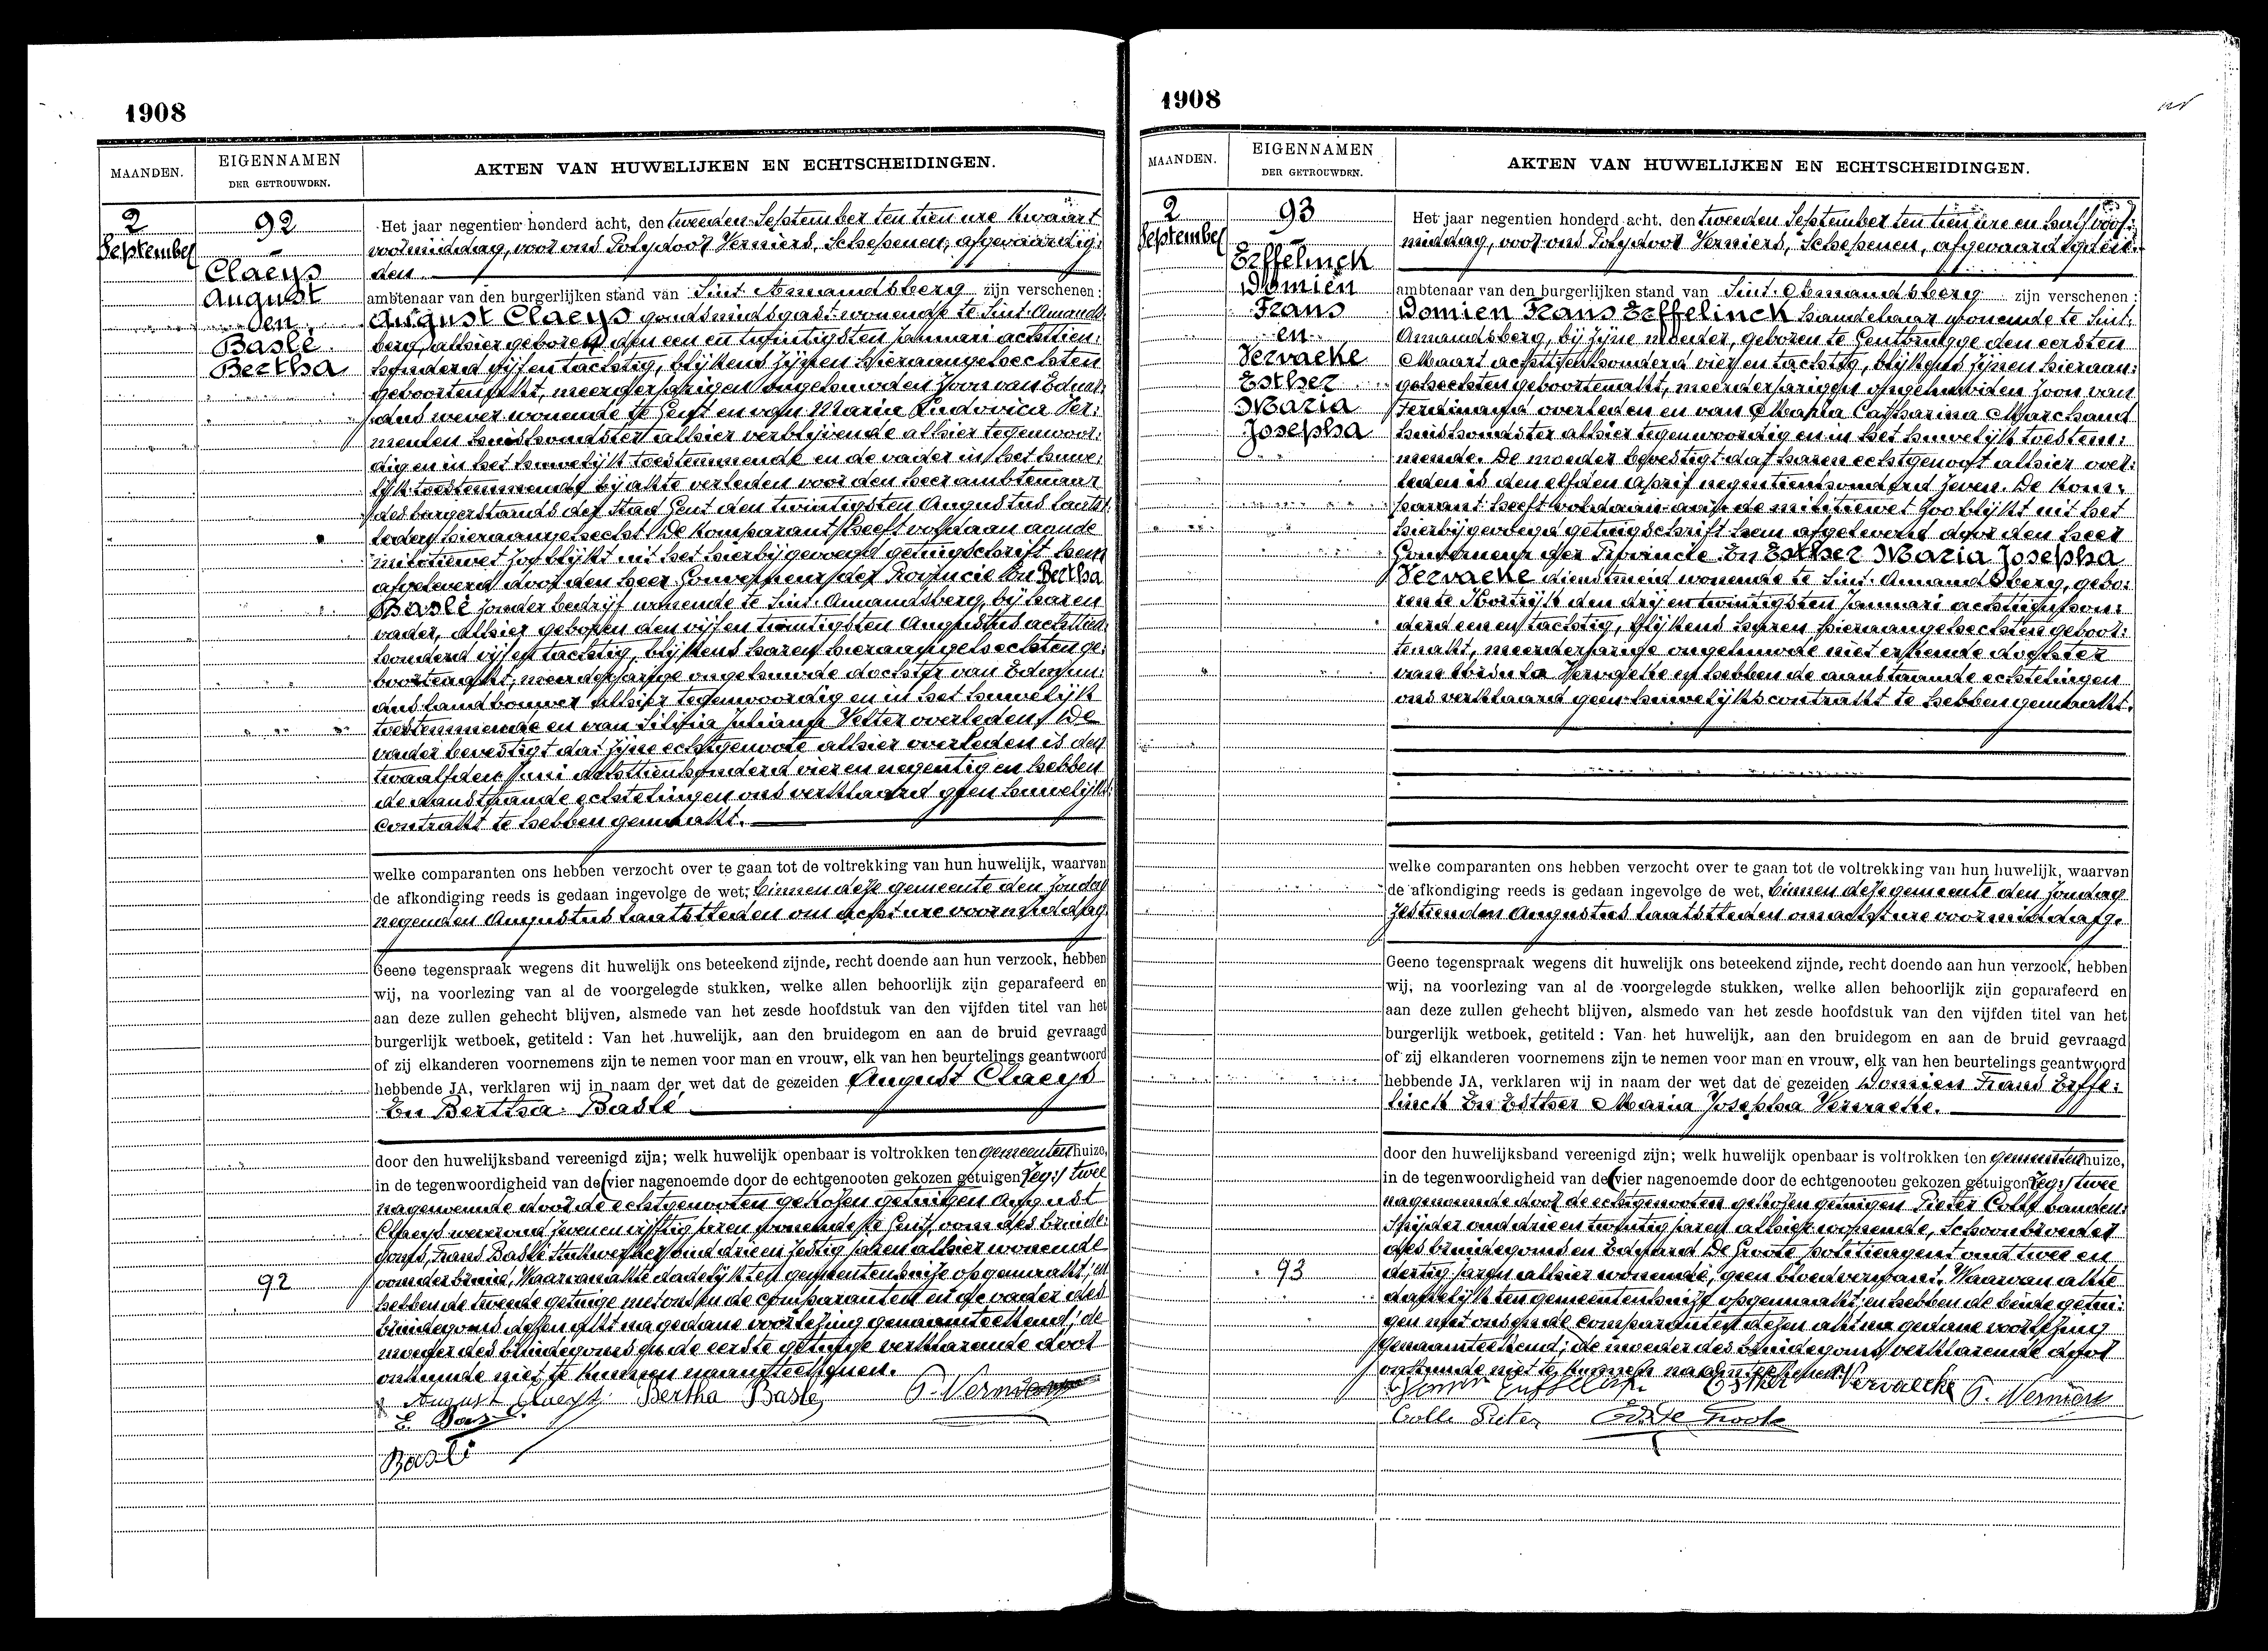 1908
MAANDEN.
EIGENNAMEN
DER GETROUWDEN.
AKTEN VAN HUWELIJKEN EN ECHTSCHEIDINGEN.
2
September
92
Claeys
August
en
Baslé
Bertha
Het jaar negentien honderd acht, den tweeden September ten tien ure kwaart
voormiddag, voor ons Polydoor Verniers, Schepenen, afgevaardig:
den
ambtenaar van den burgerlijken stand van Sint Amandsberg zijn verschenen:
August Claeys goudsmidsgast wonende te Sint-Amands
berg, alhier geboren den een en twintigsten Januari achttien
honderd vijf en tachtig, blijkens zijnen hieraangehechten
geboorteakt, meerderjarigen ongehuwden zoon van Eduar
dus wever wonende te Gent en van Maria Ludovica Ver:
meulen huishoudster alhier verblijvende alhier tegenwoor:
dig en in het huwelijk toestemmende en de vader in het huwe:
lijk toestemmende bij akte verleden voor den heer ambtenaar
des burgerstands der Stad Gent den twintigsten Augustus laatst
leden, hieraangehecht. De komparant heeft voldaan aan de
militiewet zoo blijkt uit het hierbijgevoegd getuigschrift hem
afgeleverd door den heer Gouverneur der Provincie En Bertha
Baslé zonder bedrijf wonende te Sint-Amandsberg, bij haren
vader, alhier geboren den vijf en twintigsten Augustus achttien
honderd vijf en tachtig, blijkens haren hieraangehechten ge:
boorteakt, meerderjarige ongehuwde dochter van Edmun:
dus landbouwer alhier tegenwoordig en in het huwelijk
toestemmende en van Juliana Vetter overleden. De
vader bevestigt dat zijne echtgenoote alhier overleden is den
twaalfden Juni achttienhonderd vier en negentig en hebben
de aanstaande echtelingen ons verklaard geen huwelijks:
contrakt te hebben gemaakt.
welke comparanten ons hebben verzocht over te gaan tot de voltrekking van hun huwelijk, waarvan
de afkondiging reeds is gedaan ingevolge de wet, binnen deze gemeente den Zondag
negenden Augustus laatstleden om acht ure voormiddag.
Geene tegenspraak wegens dit huwelijk ons beteekend zijnde, recht doende aan hun verzoek, hebben
wij, na voorlezing van al de voorgelegde stukken, welke allen behoorlijk zijn geparafeerd en
aan deze zullen gehecht blijven, alsmede van het zesde hoofdstuk van den vijfden titel van het
burgerlijk wetboek, getiteld : Van het huwelijk, aan den bruidegom en aan de bruid gevraagd
of zij elkanderen voornemens zijn te nemen voor man en vrouw, elk van hen beurtelings geantwoord
hebbende JA, verklaren wij in naam der wet dat de gezeiden August Claeys
En Bertha Baslé
door den huwelijksband vereenigd zijn; welk huwelijk openbaar is voltrokken ten gemeentenhuize,
in de tegenwoordigheid van de (vier nagenoemde door de echtgenooten gekozen getuigen zeg:) twee
nagenoemde door de echtgenooten gekozen getuigen August
Claeys wever oud zeven en vijftig jaren wonende te Gent, oom des bruide:
goms, Frans Baslé stukwerker oud drie en zestig jaren alhier wonende
oom der bruid, Waarvan akte dadelijk ten gemeentenhuize opgemaakt; en
hebben de tweede getuige met ons en de comparanten en de vader des
bruidegoms dezen akt na gedane voorlezing genaamteekend; de
moeder des bruidegoms en de eerste getuige verklarende door
onkunde niet te kunnen naamteekenen.
92
August Claeys Bertha Baslé P. Verniers
Baslé
1908
MAANDEN.
EIGENNAMEN
DER GETROUWDEN.
AKTEN VAN HUWELIJKEN EN ECHTSCHEIDINGEN.
2
September
93
Effelinck
Domien
Frans
en
Vervaeke
Esther
Maria
Josepha
Het jaar negentien honderd acht, den tweeden September ten tien ure en half voor:
middag, voor ons Polydoor Verniers, Schepenen, afgevaardigden
ambtenaar van den burgerlijken stand van Sint-Amandsberg zijn verschenen:
Domien Frans Effelinck handelaar wonende te Sint-
Amandsberg, bij zijne moeder, geboren te Gentbrugge den eersten
Maart achttienhonderd vier en tachtig, blijkens zijnen hieraan:
gehechten geboorteakt, meerderjarigen ongehuwden zoon van
Ferdinand overleden en van Maria Catharina Marchand
huishoudster alhier tegenwoordig en in het huwelijk toestem:
mende. De moeder bevestigt dat haren echtgenoot alhier over:
leden is den elfden April negentienhonderd zeven. De kom:
parant heeft voldaan aan de militiewet zoo blijkt uit het
hierbijgevoegd getuigschrift hem afgeleverd door den heer
Gouverneur der Provincie En Esther Maria Josepha
Vervaeke dienstmeid wonende te Sint-Amandsberg, gebo:
ren te Kortrijk den drij en twintigsten Januari achttienhon:
derd een en tachtig, blijkens haren hieraangehechten geboor:
teakt, meerderjarige ongehuwde niet erkende dochter
van Vervaeke en hebben de aanstaande echtelingen
ons verklaard geen huwelijkscontrakt te hebben gemaakt.
welke comparanten ons hebben verzocht over te gaan tot de voltrekking van hun huwelijk, waarvan
de afkondiging reeds is gedaan ingevolge de wet, binnen deze gemeente den Zondag
zestienden Augustus laatstleden om acht ure voormiddag.
Geene tegenspraak wegens dit huwelijk ons beteekend zijnde, recht doende aan hun verzoek, hebben
wij, na voorlezing van al de voorgelegde stukken, welke allen behoorlijk zijn geparafeerd en
aan deze zullen gehecht blijven, alsmede van het zesde hoofdstuk van den vijfden titel van het
burgerlijk wetboek, getiteld : Van het huwelijk, aan den bruidegom en aan de bruid gevraagd
of zij elkanderen voornemens zijn te nemen voor man en vrouw, elk van hen beurtelings geantwoord
hebbende JA, verklaren wij in naam der wet dat de gezeiden Domien Frans Effe:
linck En Esther Maria Josepha Vervaeke.
door den huwelijksband vereenigd zijn; welk huwelijk openbaar is voltrokken ten gemeentenhuize,
in de tegenwoordigheid van de (vier nagenoemde door de echtgenooten gekozen getuigen zeg:) twee
nagenoemde door de echtgenooten gekozen getuigen Pieter Colle banden:
snijder oud drie en twintig jaren alhier wonende, schoonbroeder
des bruidegoms en Eduard De Groote politieagent oud twee en
dertig jaren alhier wonende, geen bloedverwant. Waarvan akte
dadelijk ten gemeentenhuize opgemaakt en hebben de beide getui:
gen met ons en de comparanten dezen akt na gedane voorlezing
genaamteekend; de moeder des bruidegoms verklarende door
onkunde niet te kunnen naamteekenen.
93
Effelinck Esther Vervaeke P. Verniers
Colle Pieter Ed. De Groote